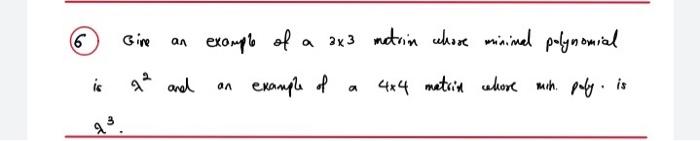 6 Give an example of a 3x3 matrix whose minimal polynomial
is λ² and an example of a 4x4 matrix whose min. poly. is
λ³.